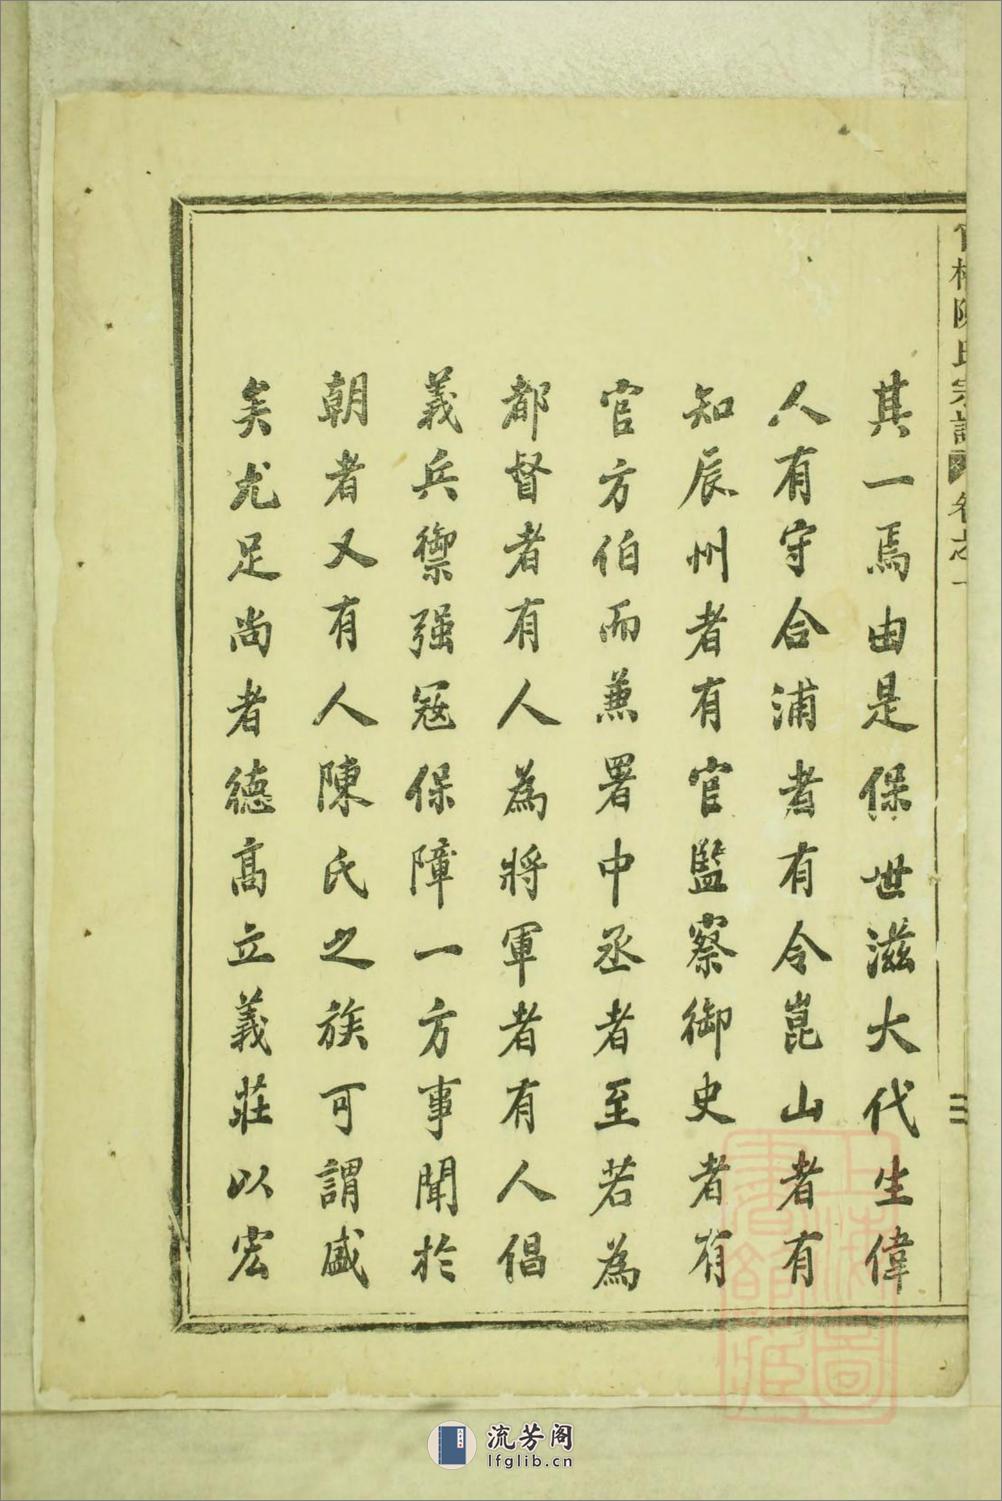 其一焉由是保世滋大代生偉
人有守合浦者有令崑山者有
知辰州者有官監察御史者有
官方伯而兼署中丞者至若為
都督者有人為將軍者有人倡
義兵禦强寇保障一方事聞於
朝者又有人陳氏之族可謂盛
矣尤足尚者德高立義莊以宏
陳氏宗譜 卷之一
流芳阁
lfglib.cn